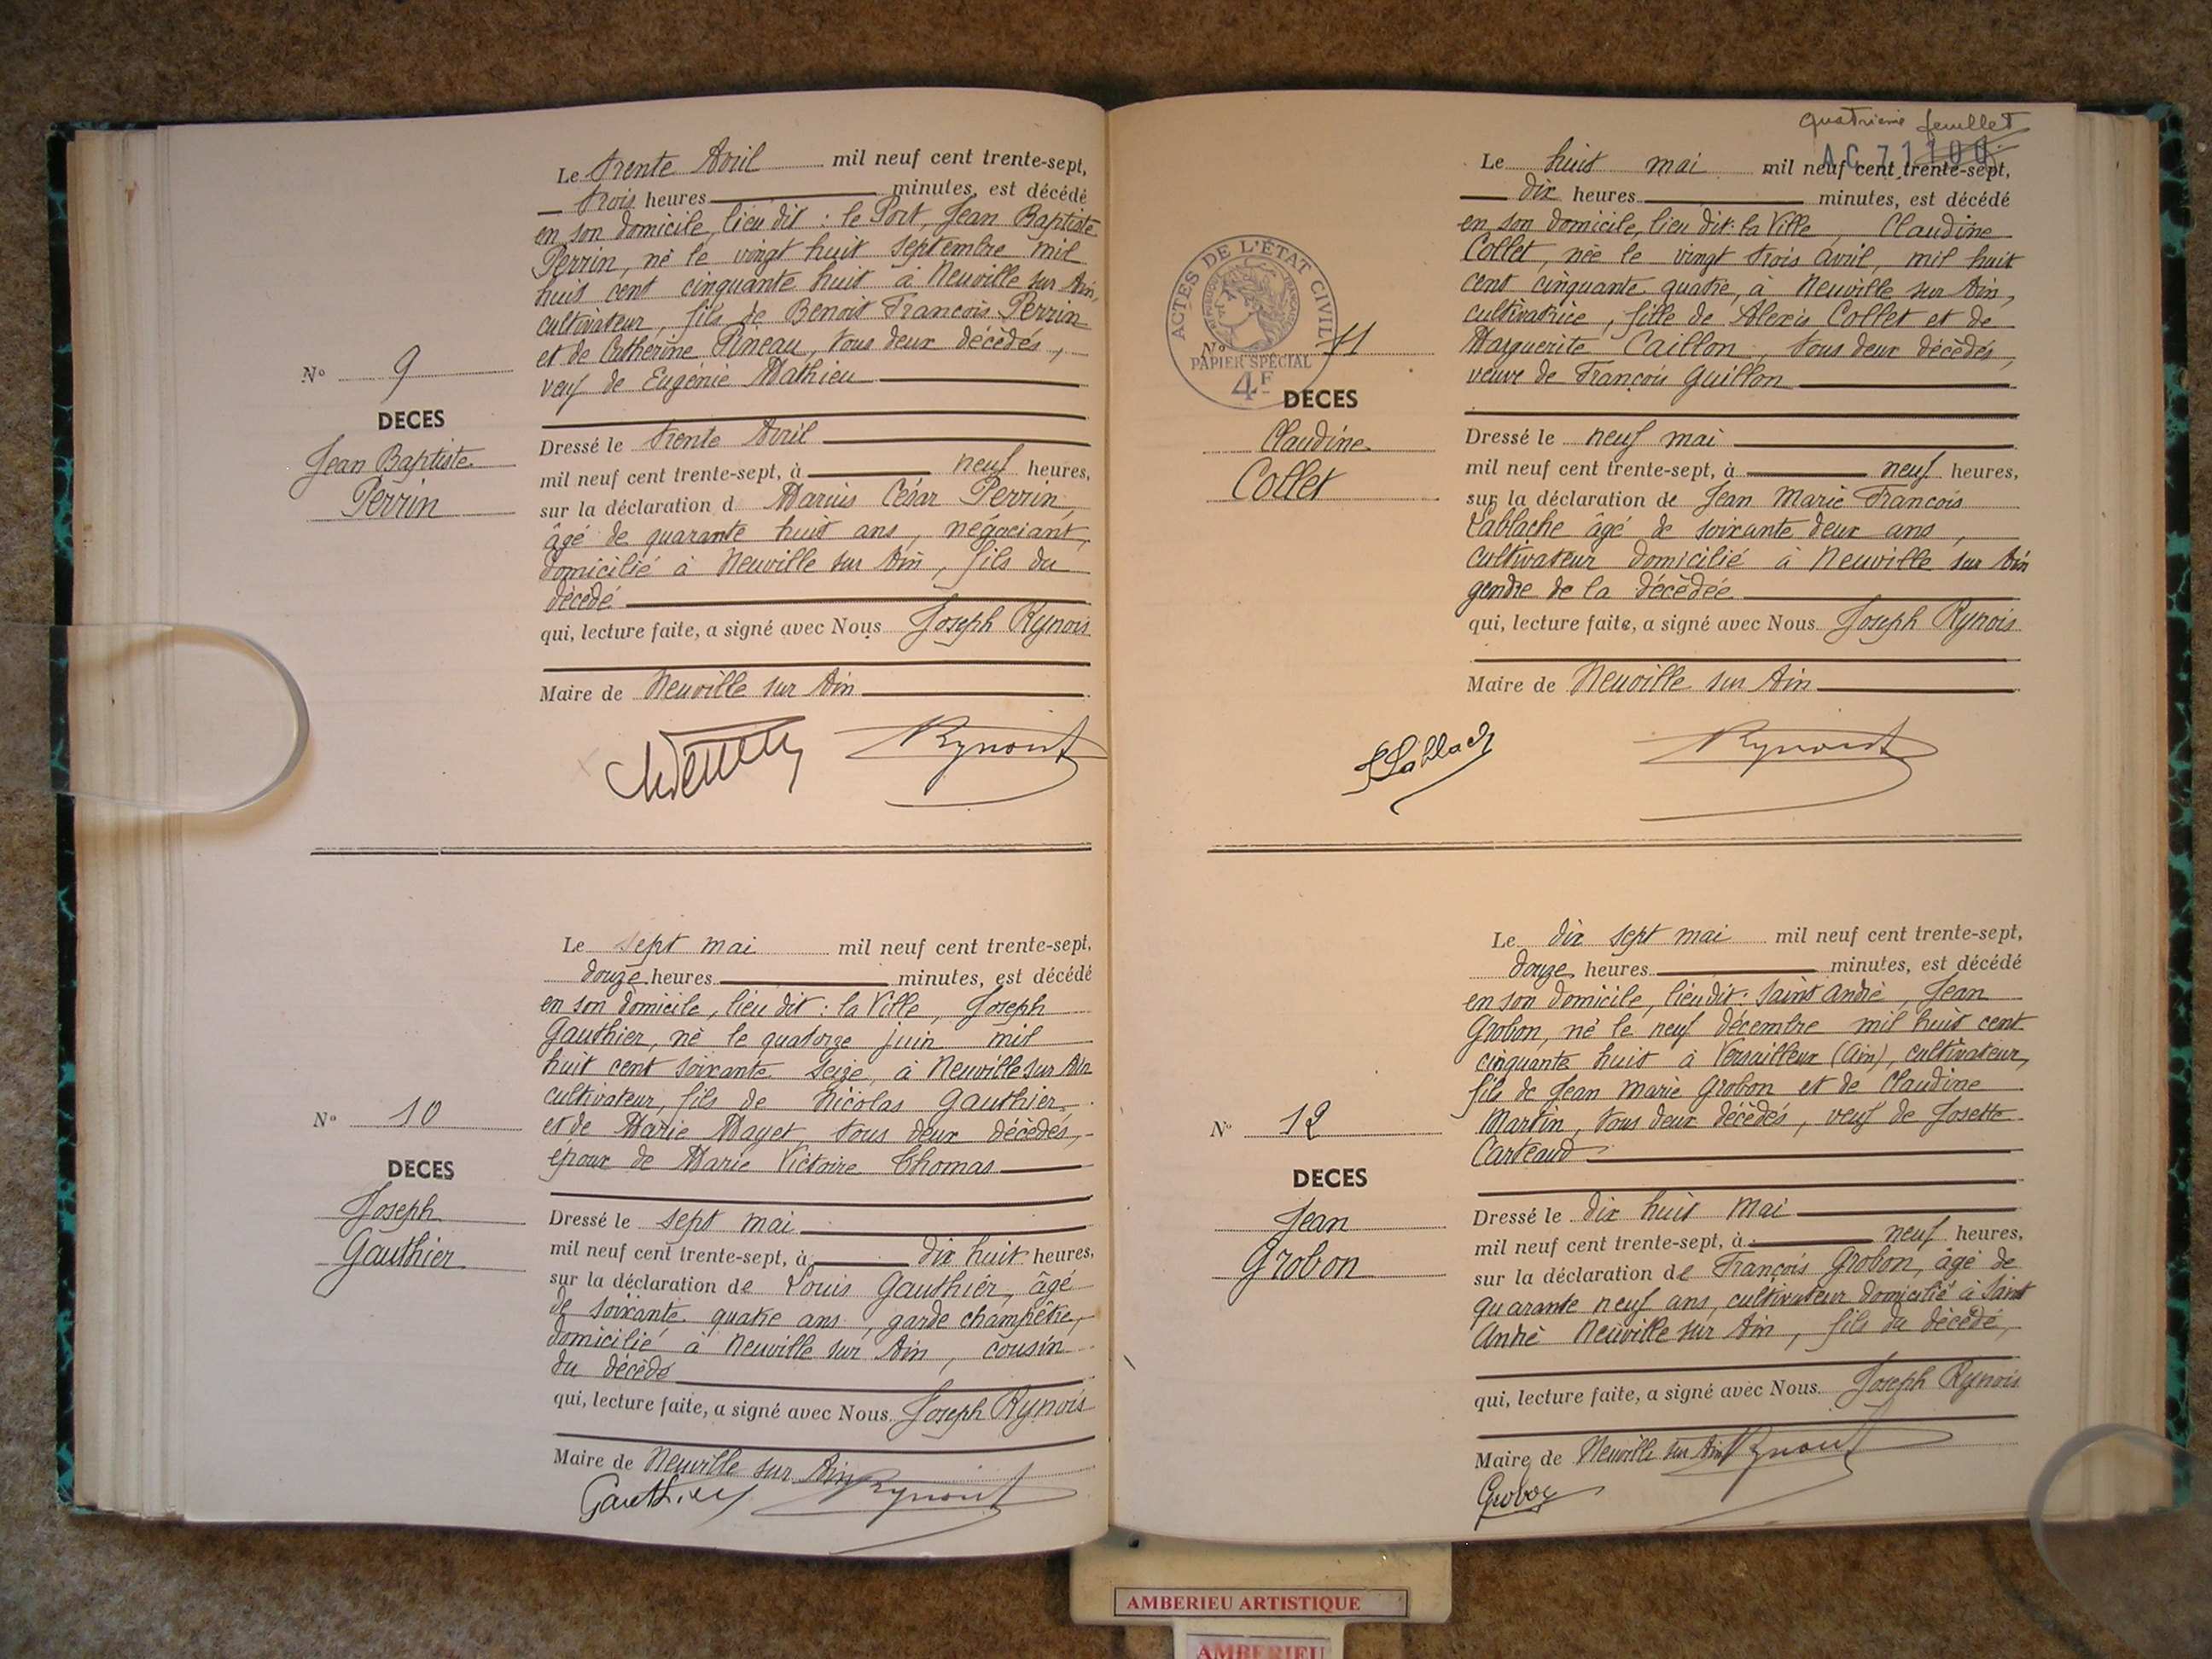 Le trente Avril mil neuf cent trente-sept,
trois heures minutes, est décédé
en son domicile, lieu dit : le Port, Jean Baptiste
Perrin, né le vingt huit septembre mil
huit cent cinquante huit à Neuville sur Ain,
cultivateur, fils de Benoit François Perrin
et de Catherine Pineau, tous deux décédés,
veuf de Eugénie Mathieu
Nº 9
DECES
Jean Baptiste
Perrin
Dressé le trente Avril
mil neuf cent trente-sept, à neuf heures,
sur la déclaration d Marius César Perrin,
âgé de quarante huit ans, négociant,
domicilié à Neuville sur Ain, fils du
décédé
qui, lecture faite, a signé avec Nous Joseph Rynois
Maire de Neuville sur Ain
Le sept mai mil neuf cent trente-sept,
douze heures minutes, est décédé
en son domicile, lieu dit : la Ville, Joseph
Gauthier, né le quatorze juin mil
huit cent soixante seize, à Neuville sur Ain
cultivateur, fils de Nicolas Gauthier
et de Marie Mayet, tous deux décédés,
époux de Marie Victoire Thomas
Nº 10
DECES
Joseph
Gauthier
Dressé le sept mai
mil neuf cent trente-sept, à dix huit heures,
sur la déclaration de Louis Gauthier, âgé
de soixante quatre ans, garde champêtre,
domicilié à Neuville sur Ain, cousin
du décédé
qui, lecture faite, a signé avec Nous Joseph Rynois
Maire de Neuville sur Ain
Gauthier
quatrième feuillet
AC 71100
Le huit mai mil neuf cent trente-sept,
dix heures minutes, est décédé
en son domicile, lieu dit : la Ville, Claudine
Collet, née le vingt trois avril, mil huit
cent cinquante quatre, à Neuville sur Ain,
cultivatrice, fille de Alexis Collet et de
Marguerite Caillon, tous deux décédés,
veuve de François Guillon
ACTES DE L'ÉTAT CIVIL
RÉPUBLIQUE FRANÇAISE
PAPIER SPÉCIAL
4F
Nº 11
DECES
Claudine
Collet
Dressé le neuf mai
mil neuf cent trente-sept, à neuf heures,
sur la déclaration de Jean Marie François
Lablache âgé de soixante deux ans,
cultivateur domicilié à Neuville sur Ain
gendre de la décédée
qui, lecture faite, a signé avec Nous Joseph Rynois
Maire de Neuville sur Ain
Le dix sept mai mil neuf cent trente-sept,
douze heures minutes, est décédé
en son domicile, lieu dit : Saint André, Jean
Grobon, né le neuf décembre mil huit cent
cinquante huit à Versailleux (Ain), cultivateur,
fils de Jean Marie Grobon et de Claudine
Martin, tous deux décédés, veuf de Josette
Carteaud
Nº 12
DECES
Jean
Grobon
Dressé le dix huit Mai
mil neuf cent trente-sept, à neuf heures,
sur la déclaration de François Grobon, âgé de
quarante neuf ans, cultivateur domicilié à Saint
André Neuville sur Ain, fils du décédé,
qui, lecture faite, a signé avec Nous Joseph Rynois
Maire de Neuville sur Ain
Grobon
AMBERIEU ARTISTIQUE
AMBERIEU